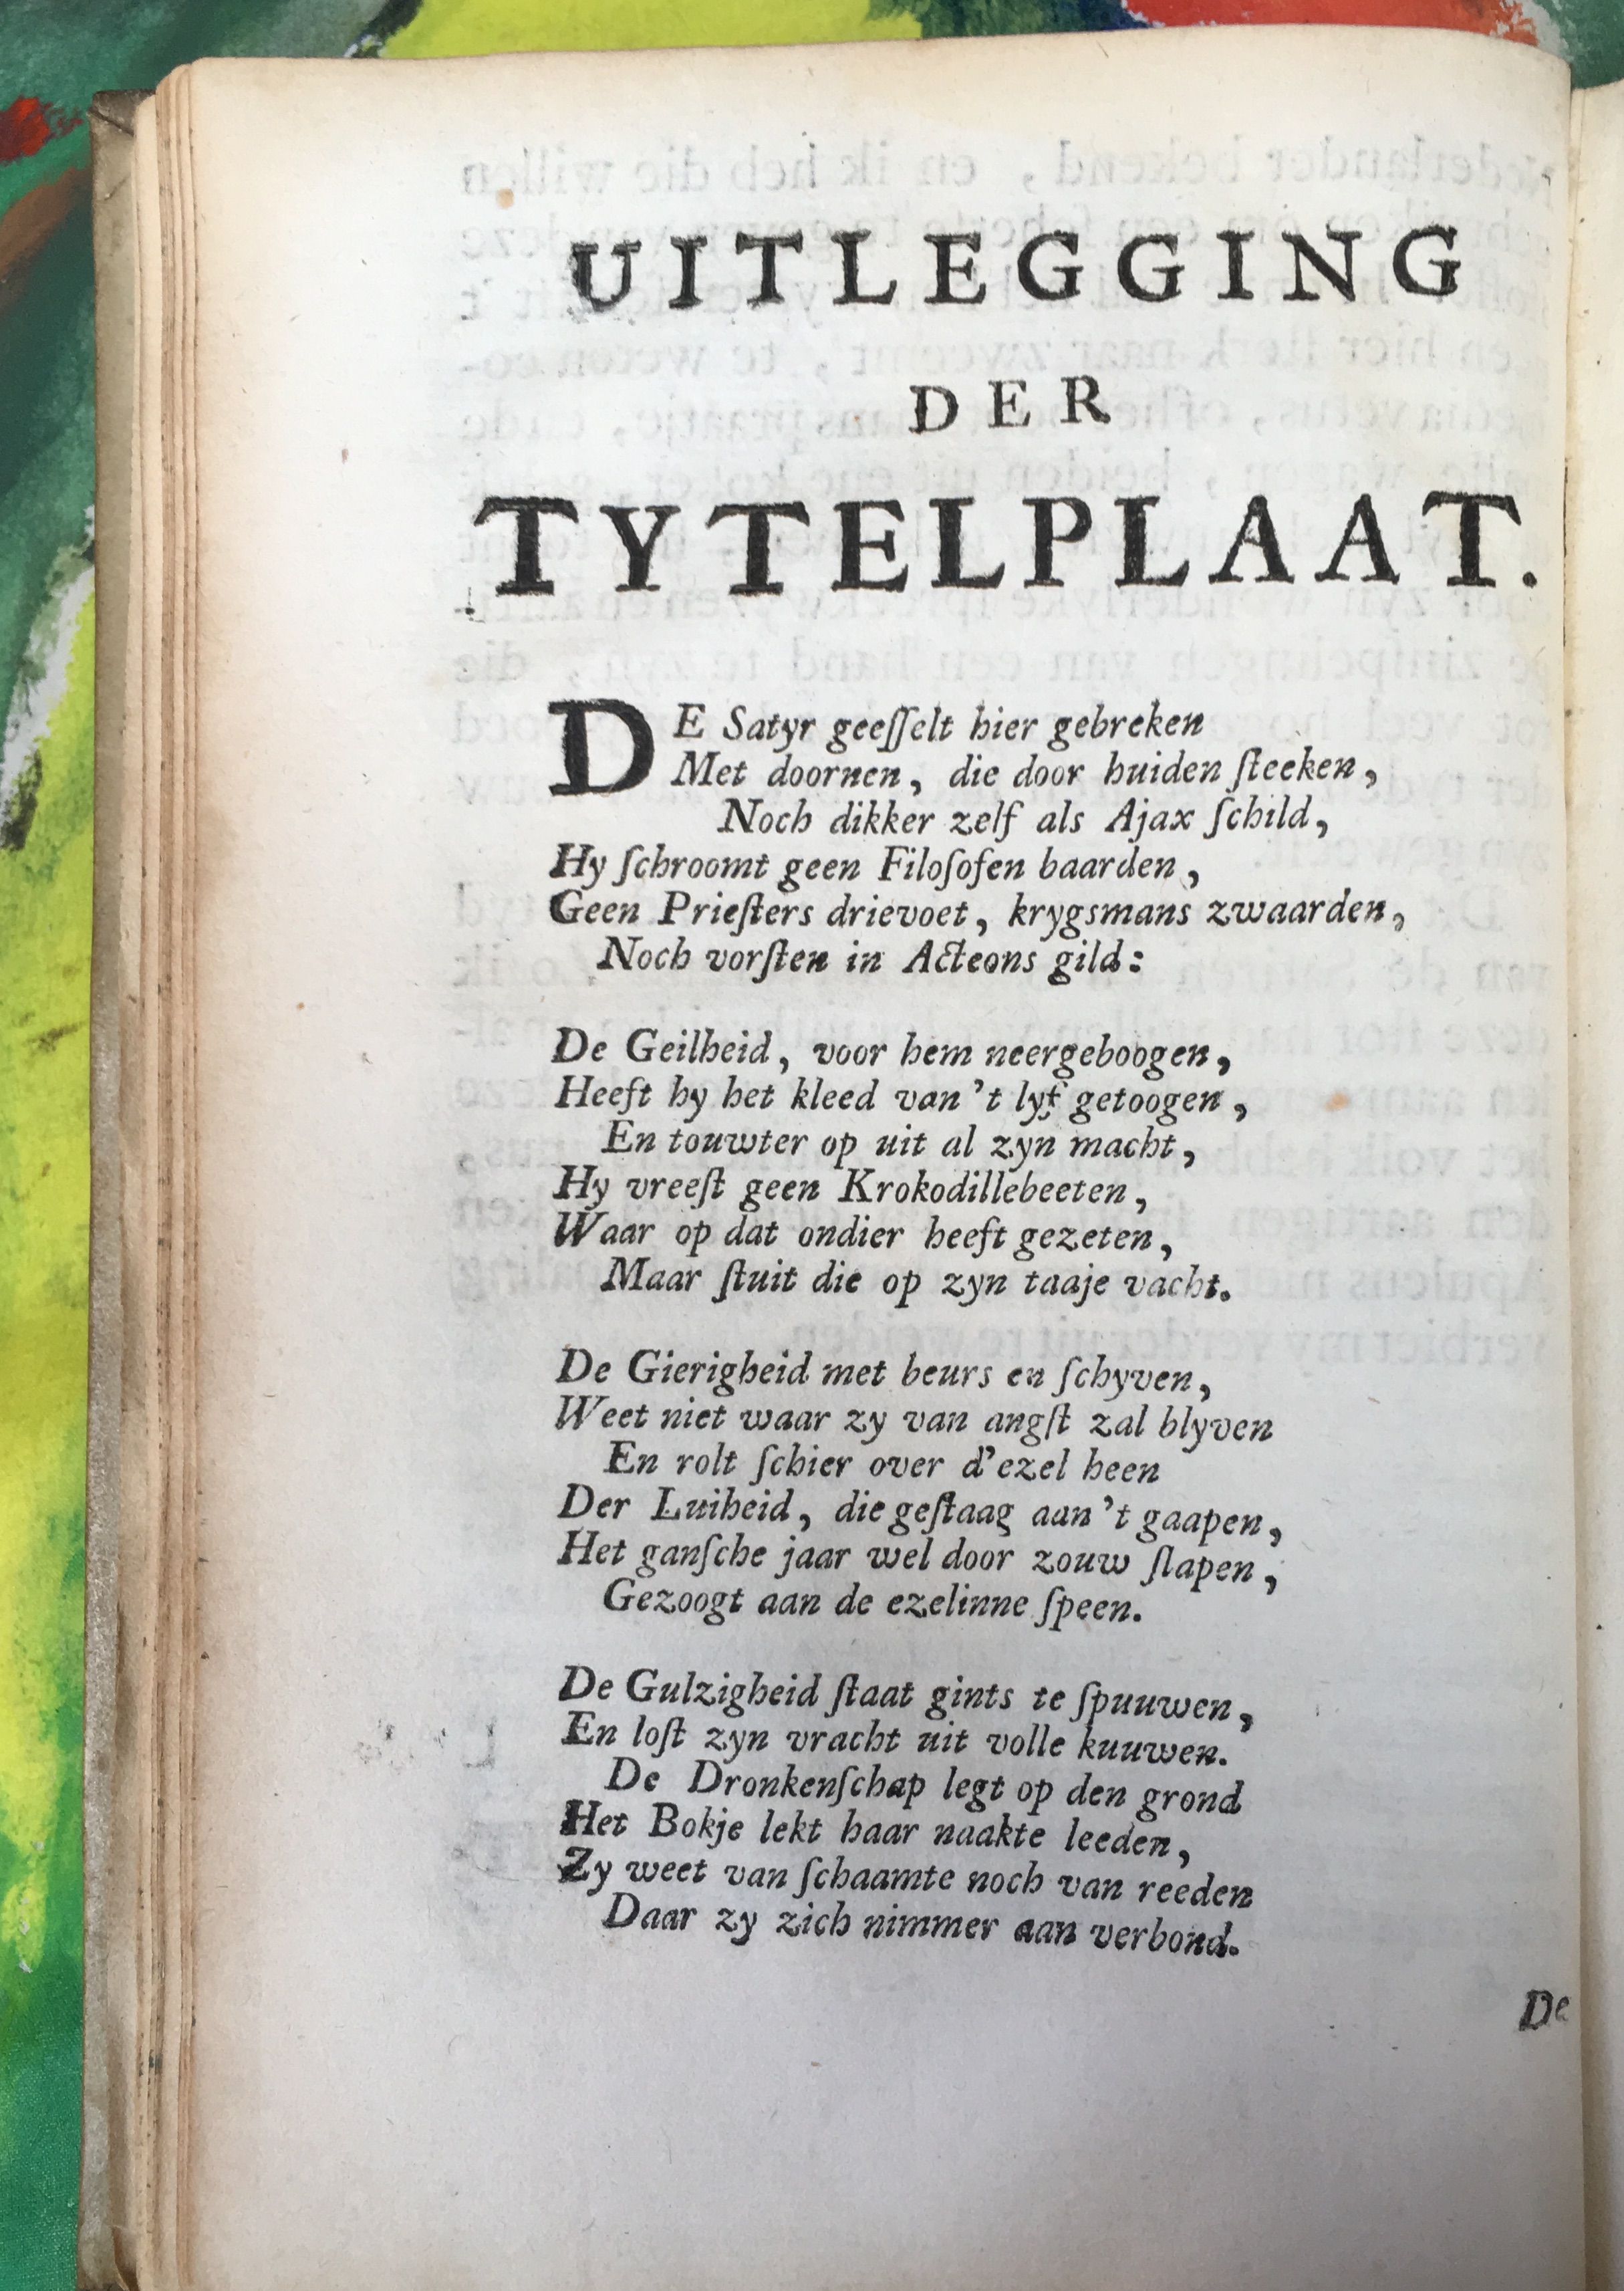 UITLEGGING
DER
TYTELPLAAT.
DE Satyr geeſſelt hier gebreken
Met doornen, die door huiden ſteeken,
Noch dikker zelf als Ajax ſchild,
Hy ſchroomt geen Filoſofen baarden,
Geen Prieſters drievoet, krygsmans zwaarden,
Noch vorſten in Acteons gild:
De Geilheid, voor hem neergeboogen,
Heeft hy het kleed van't lyf getoogen,
En touwter op uit al zyn macht,
Hy vreeſt geen Krokodillebeeten,
Waar op dat ondier heeft gezeten,
Maar ſtuit die op zyn taaje vacht.
De Gierigheid met beurs en ſchyven,
Weet niet waar zy van angſt zal blyven
En rolt ſchier over d'ezel heen
Der Luiheid, die geſtaag aan't gaapen,
Het ganſche jaar wel door zouw ſlapen,
Gezoogt aan de ezelinne ſpeen.
De Gulzigheid ſtaat gints te ſpuuwen,
En loſt zyn vracht uit volle kuuwen.
De Dronkenſchap legt op den grond
Het Bokje lekt haar naakte leeden,
Zy weet van ſchaamte noch van reeden
Daar zy zich nimmer aan verbond.
De